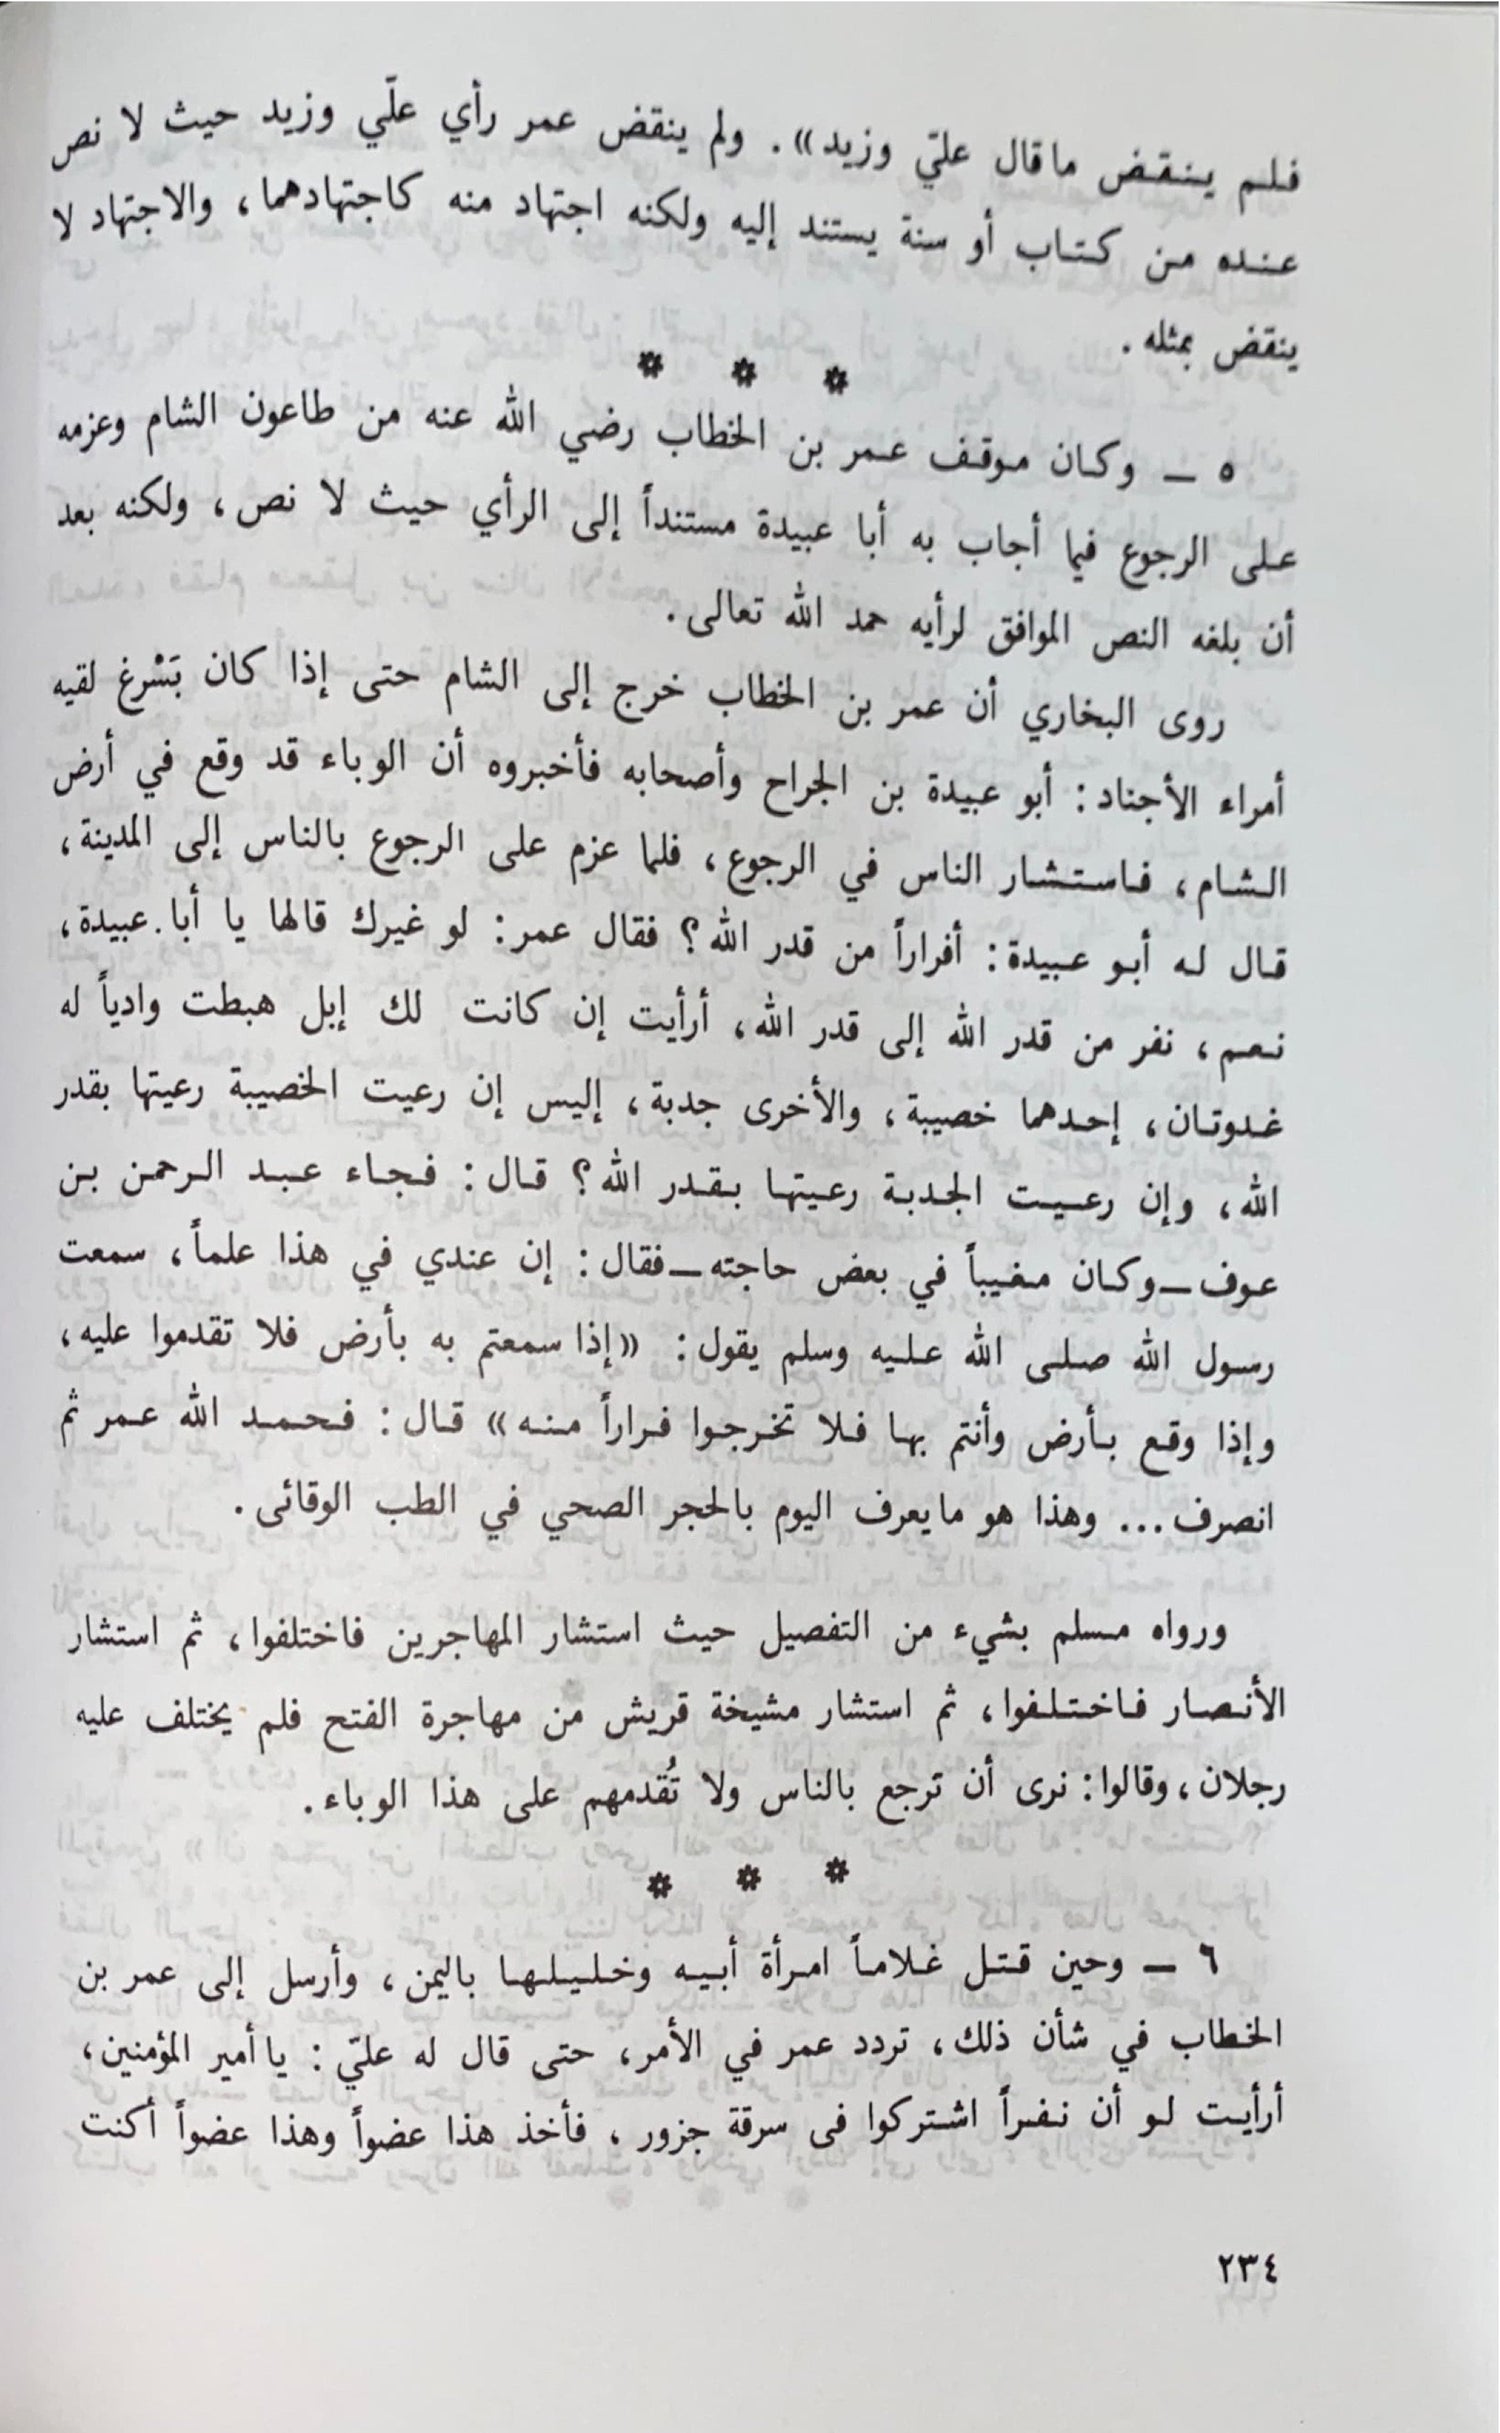 فلم ينقض ماقال عليّ وزيد». ولم ينقض عمر رأي عليّ وزيد حيث لا نص
عنده من كتاب أو سنة يستند إليه ولكنه اجتهاد منه كاجتهادهما، والاجتهاد لا
ينقض بمثله.
* * *
٥ ــ وكان موقف عمر بن الخطاب رضي الله عنه من طاعون الشام وعزمه
على الرجوع فيما أجاب به أبا عبيدة مستنداً إلى الرأي حيث لا نص، ولكنه بعد
أن بلغه النص الموافق لرأيه حمد الله تعالى.
روى البخاري أن عمر بن الخطاب خرج إلى الشام حتى إذا كان بَسْرغ لقيه
أمراء الأجناد: أبو عبيدة بن الجراح وأصحابه فأخبروه أن الوباء قد وقع في أرض
الشام، فاستشار الناس في الرجوع، فلما عزم على الرجوع بالناس إلى المدينة،
قال له أبو عبيدة: أفراراً من قدر الله؟ فقال عمر: لو غيرك قالها يا أبا عبيدة،
نعم، نفر من قدر الله إلى قدر الله، أرأيت إن كانت لك إبل هبطت وادياً له
غدوتان، إحدهما خصيبة، والأخرى جدبة، إليس إن رعيت الخصيبة رعيتها بقدر
الله، وإن رعيت الجدبة رعيتها بقدر الله؟ قال: فجاء عبد الرحمن بن
عوف ــ وكان مغيباً في بعض حاجته ــ فقال: إن عندي في هذا علماً، سمعت
رسول الله صلى الله عليه وسلم يقول: «إذا سمعتم به بأرض فلا تقدموا عليه،
وإذا وقع بأرض وأنتم بها فلا تخرجوا فراراً منه» قال: فحمد الله عمر ثم
انصرف... وهذا هو مايعرف اليوم بالحجر الصحي في الطب الوقائى.
ورواه مسلم بشيء من التفصيل حيث استشار المهاجرين فاختلفوا، ثم استشار
الأنصار فاختلفوا، ثم استشار مشيخة قريش من مهاجرة الفتح فلم يختلف عليه
رجلان، وقالوا: نرى أن ترجع بالناس ولا تُقدمهم على هذا الوباء.
* * *
٦ ــ وحين قتل غلاماً امرأة أبيه وخليلها باليمن، وأرسل إلى عمر بن
الخطاب في شأن ذلك، تردد عمر في الأمر، حتى قال له عليّ: يا أمير المؤمنين،
أرأيت لو أن نفراً اشتركوا فى سرقة جزور، فأخذ هذا عضواً وهذا عضواً أكنت
٢٣٤